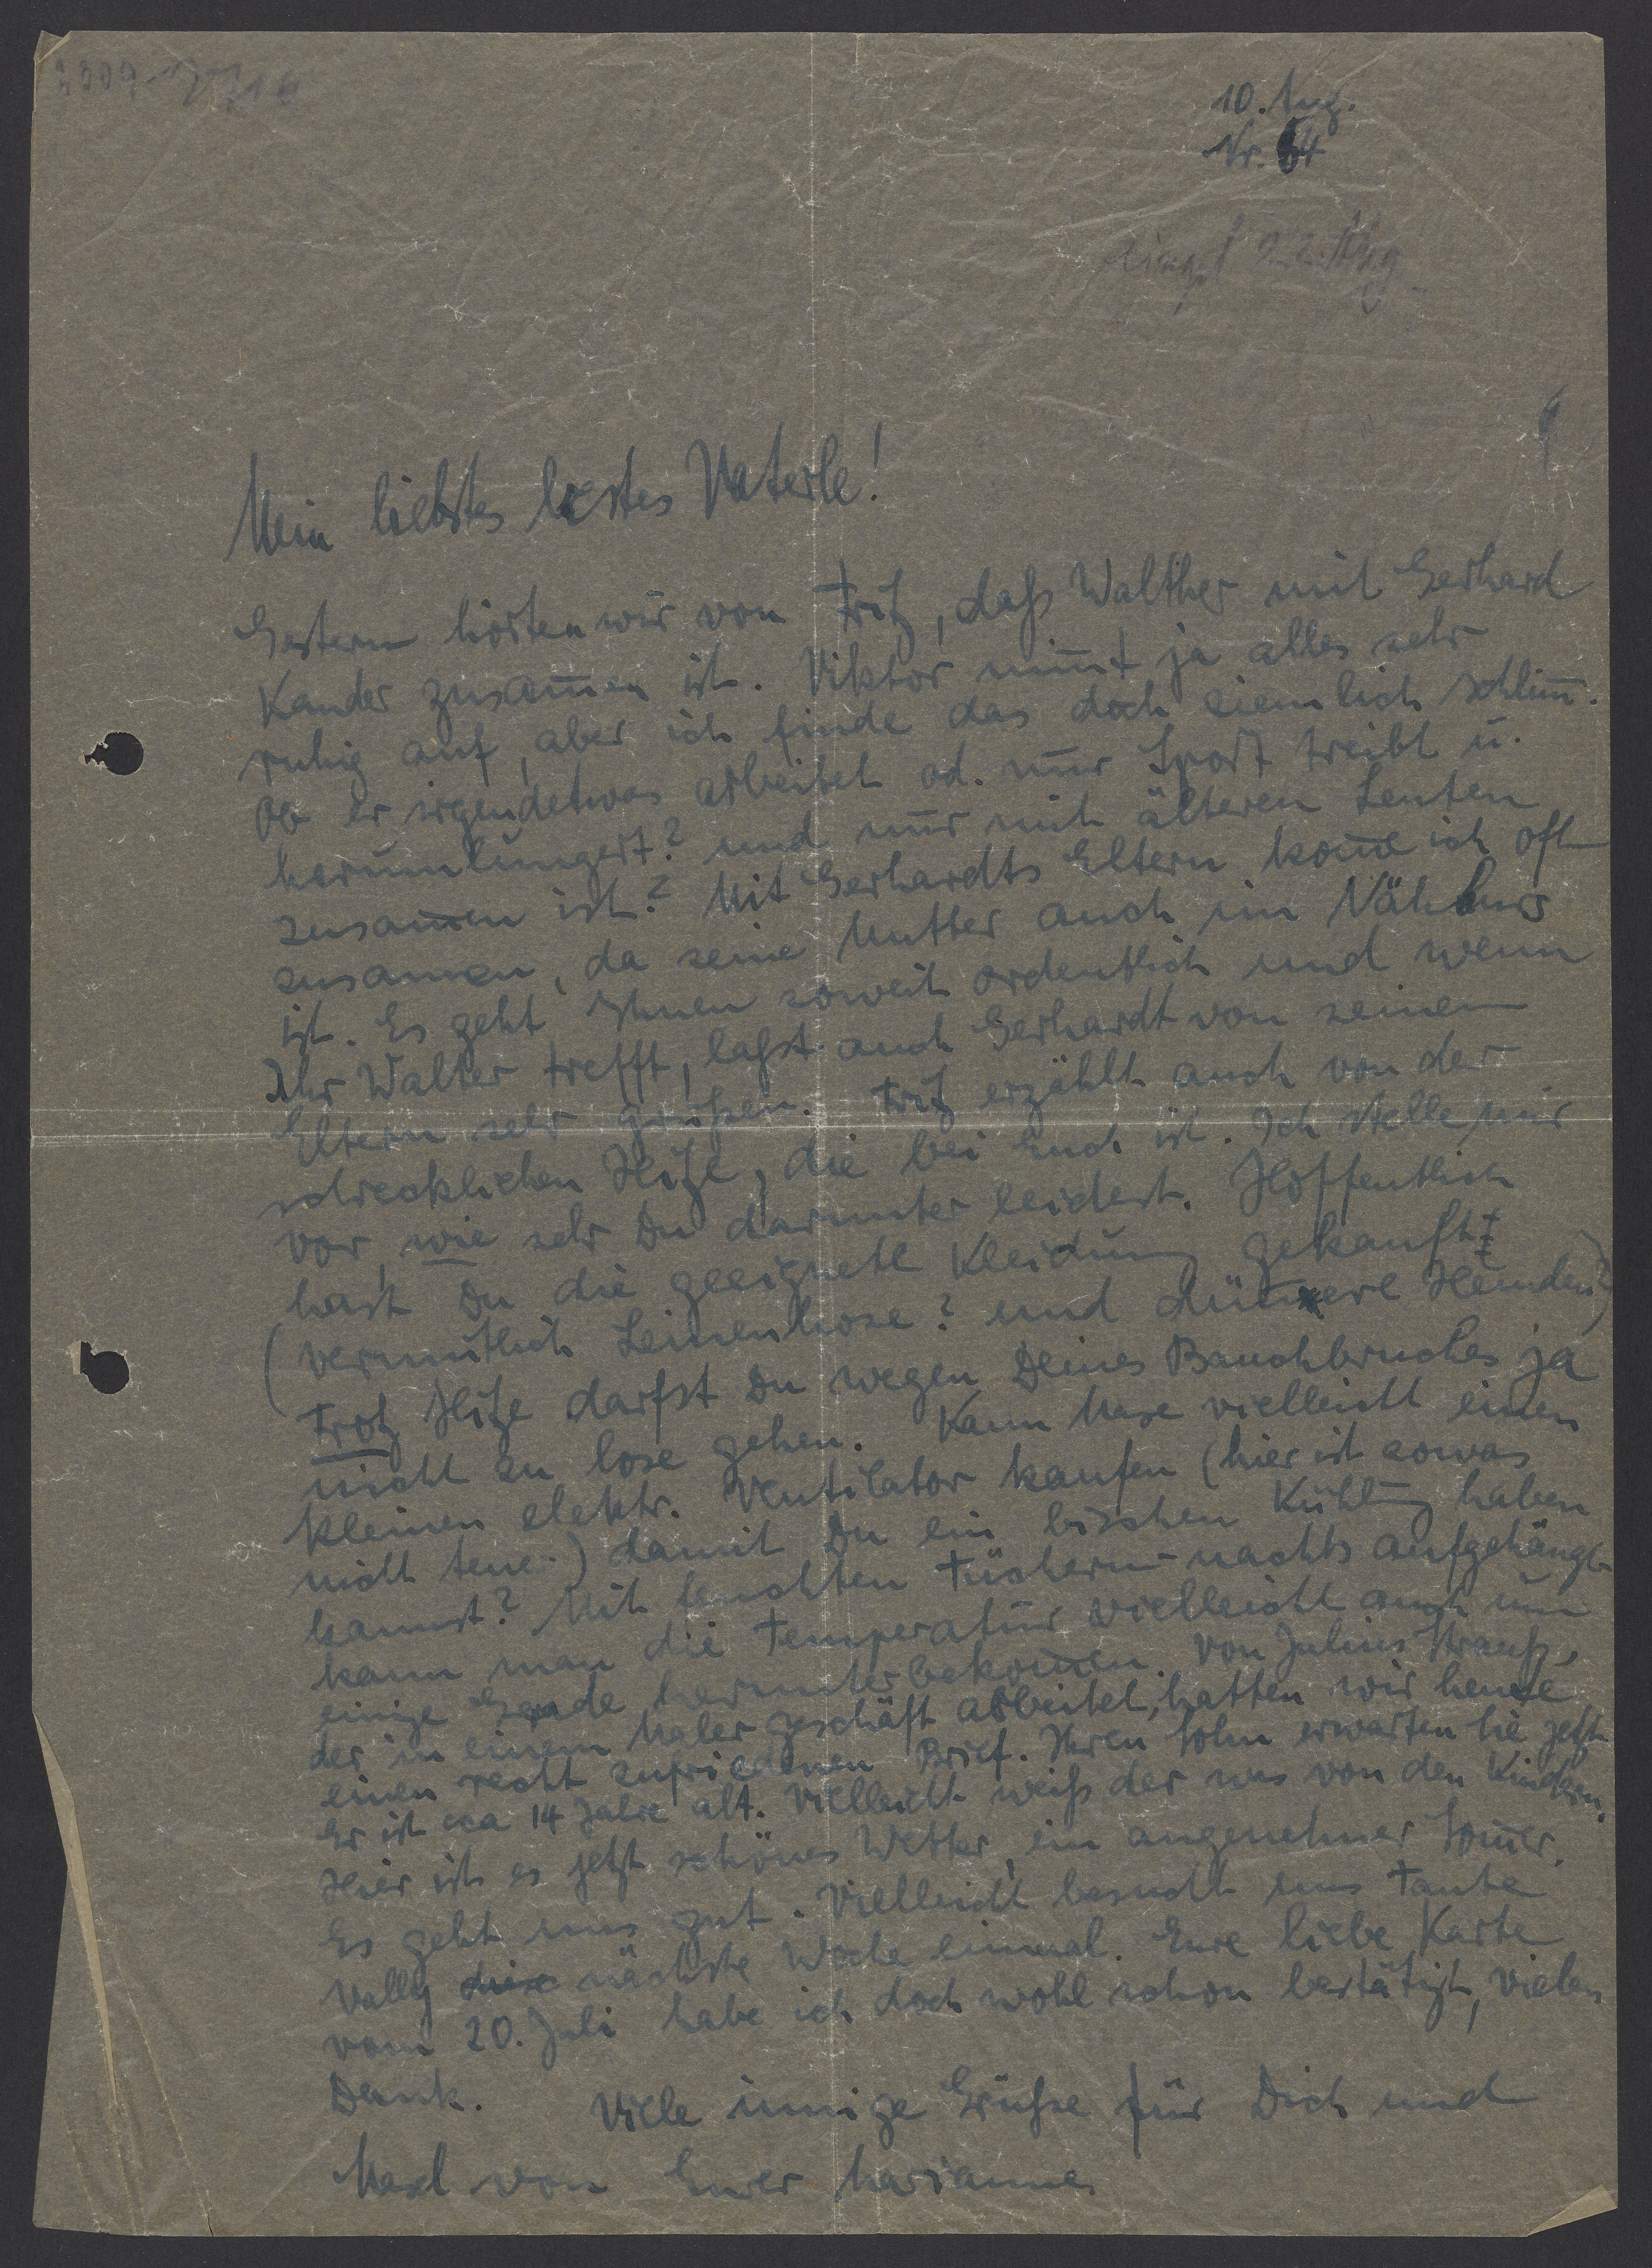 10. Aug.
Nr. 64
eingel 22. Aug
Mein liebstes bestes Vaterle!
Gestern hörten wir von Fritz, daß Walther mit Gerhard
Kander zusam̄en ist. Viktor nim̄t ja alles sehr
ruhig auf, aber ich finde das doch ziemlich schlim̄.
Ob er irgendetwas arbeitet od. nur Sport treibt u.
herumlungert? und nur mit älteren Leuten
zusam̄en ist? Mit Gerhardts Eltern kom̄e ich oft
zusamen, da seine Mutter auch im Nähkurs
ist. Es geht Ihnen soweit ordentlich und wenn
Ihr Walter trefft, laßt auch Gerhardt von seinen
Eltern sehr grüßen. Fritz erzählt auch von der
schrecklichen Hitze, die bei Euch ist. Ich stelle mir
vor, wie sehr Du darunter leidest. Hoffentlich
hast Du die geeignete Kleidung gekauft
(vermutlich Leinenhose? und dünnere Hemden?)
Trotz Hitze darfst Du wegen Deines Bauchbruches ja
nicht zu lose gehen. Kann Maxe vielleicht einen
kleinen elektr. Ventilator kaufen (hier ist sowas
nicht teuer) damit Du ein bischen Kühlung haben
kannst? Mit feuchten Tüchern nachts aufgehängt
kann man die Temperatur vielleicht auch um
einige Grade herunterbekom̄en. Von Julius Strauß,
der in einem Malergeschäft arbeitet, hatten wir heute
einen recht zufriedenen Brief. Ihren Sohn erwarten sie jetzt
Er ist cca 14 Jahre alt. Vielleicht weiß der was von den Kindern.
Hier ist es jetzt schönes Wetter, ein angenehmer Som̄er.
Es geht uns gut. Vielleicht besucht uns Tante
Vally diese nächste Woche einmal. Eure liebe Karte
vom 20. Juli habe ich doch wohl schon bestätigt, vielen
Dank. Viele innige Grüße für Dich und
Maxl von Eurer Marianne